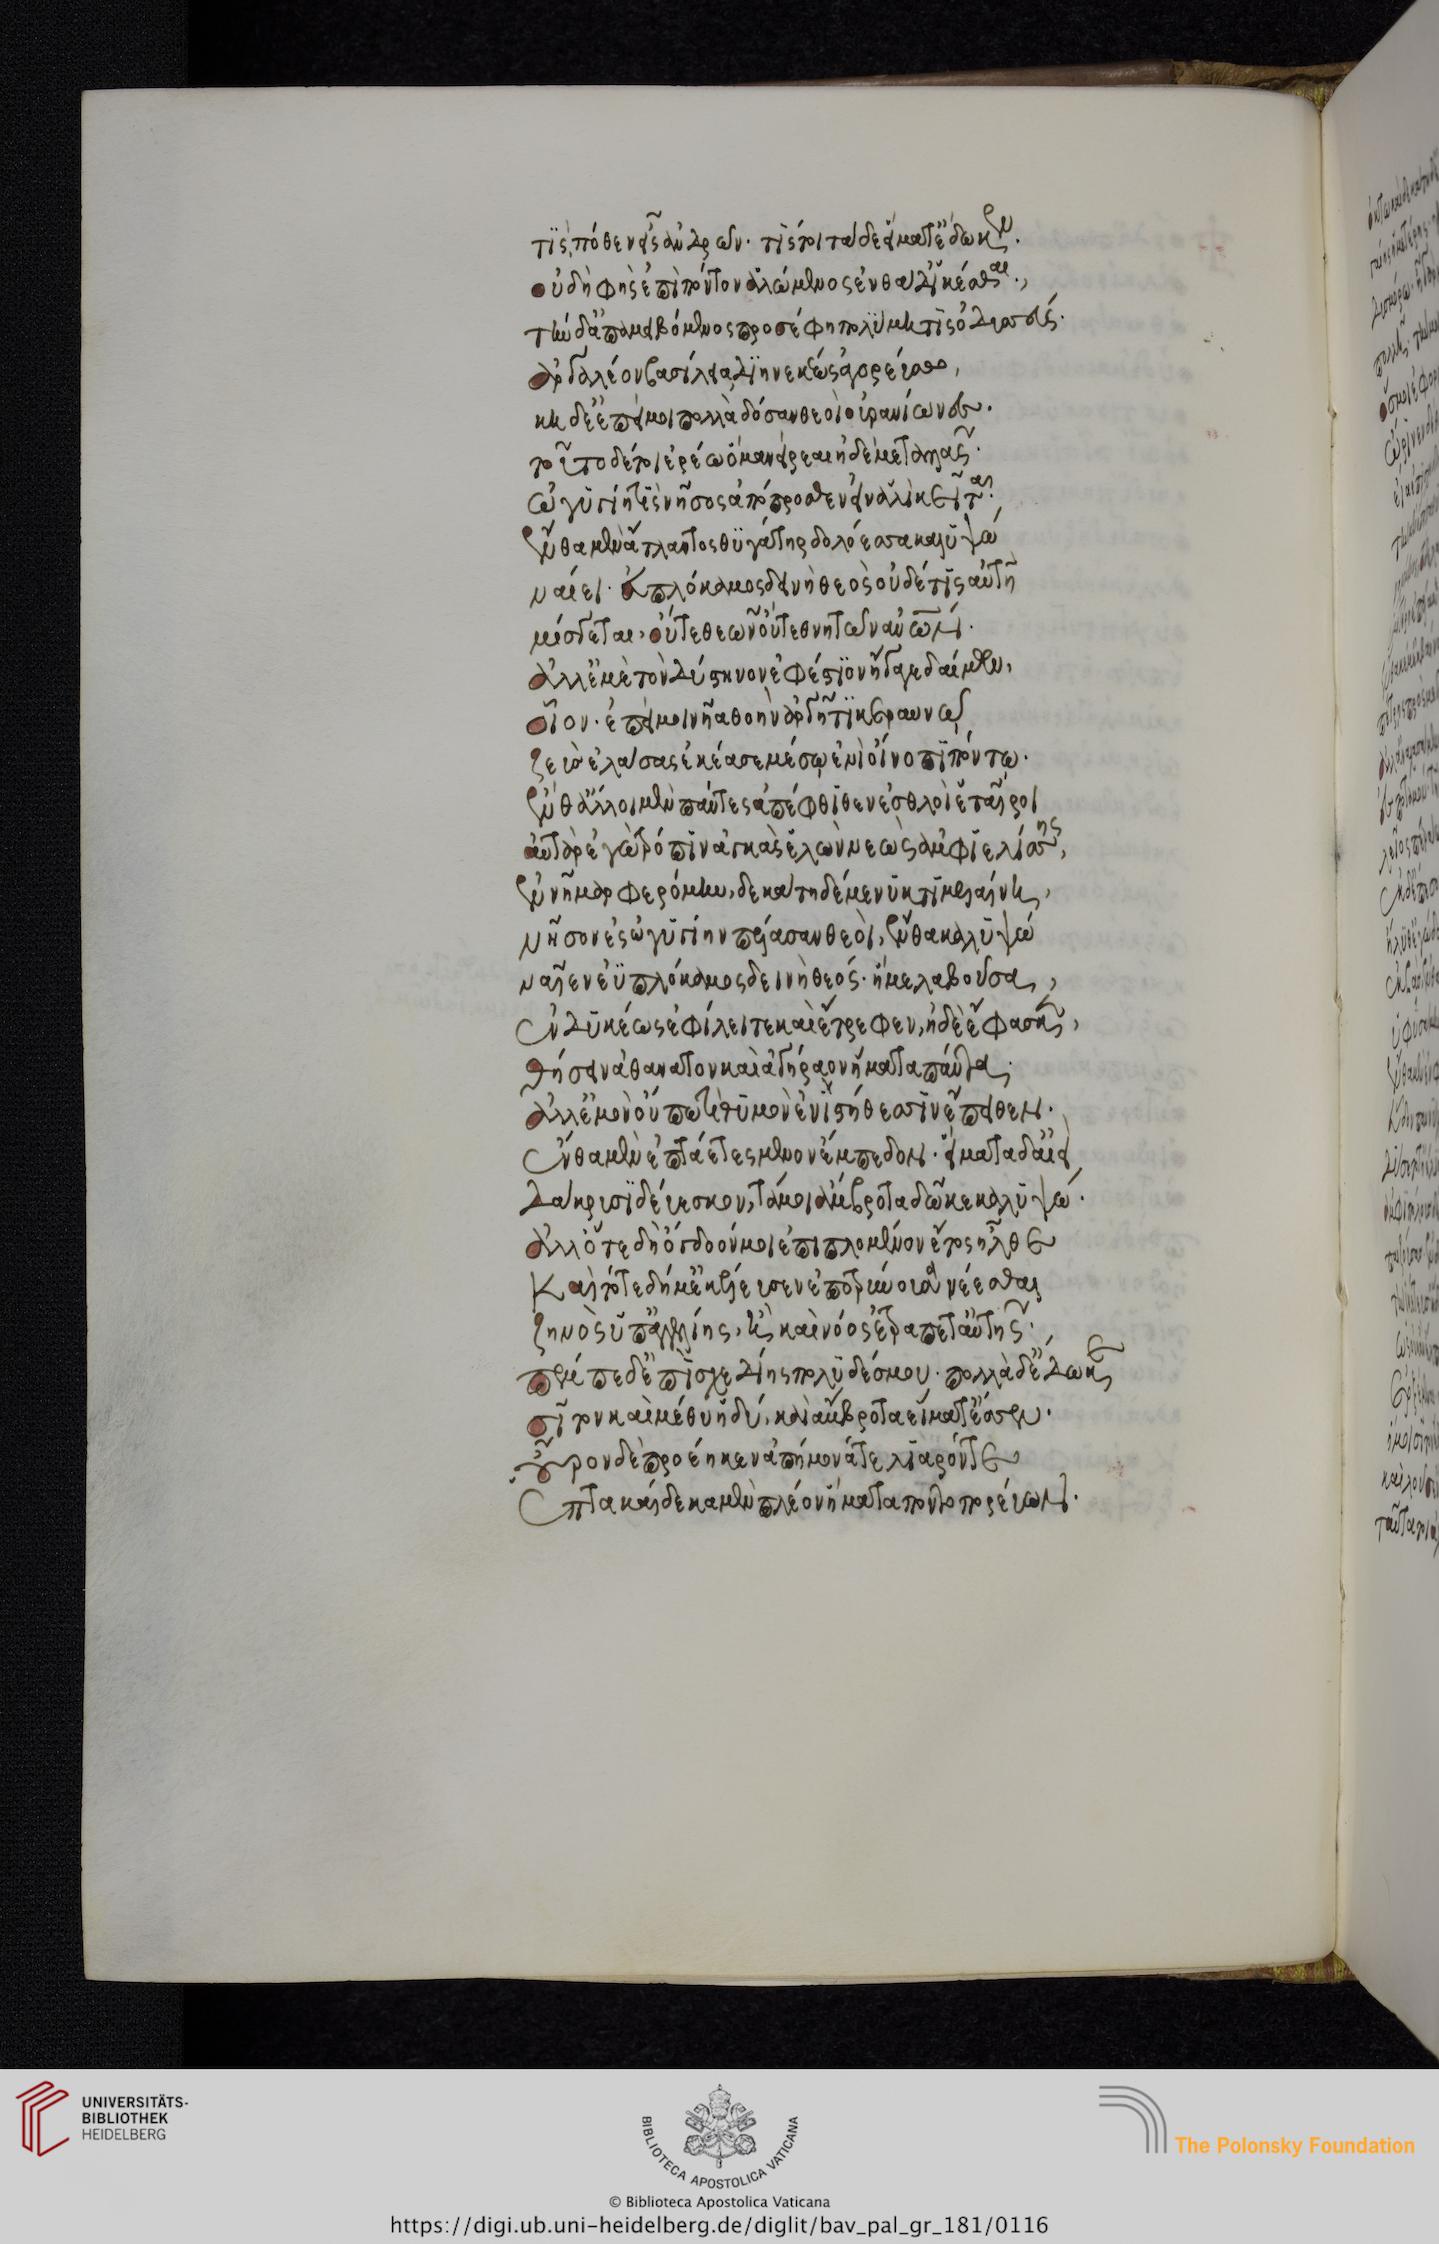 τίς πόθεν εἶς ἀνδρῶν· τίς τοι τάδε εἵματ' ἔδωκεν·
οὐ δὴ φῂς ἐπὶ πόντον ἀλώμενος ἐνθάδ' ἱκέσθαι·,
τὴν δ' ἀπαμειβόμενος προσέφη πολύμητις ὀδυσσεύς·
ἀργαλέον βασίλεια διηνεκέως ἀγορεῦσαι,
κήδε' ἐπεί μοι πολλὰ δόσαν θεοὶ οὐρανίωνες·
τοῦτο δέ τοι ἐρέω ὅ μ' ἀνείρεαι ἠδὲ μεταλλᾷς·
ὠγυγίη τις νῆσος ἀπόπροθεν εἰν ἁλὶ κεῖται·
ἔνθα μὲν ἄτλαντος θυγάτηρ δολόεσσα καλυψώ
ναίει· ἐϋπλόκαμος δεινὴ θεὸς οὐδέ τις αὐτῇ
μίσγεται, οὔτε θεῶν οὔτε θνητῶν ἀνθρώπων·
ἀλλ' ἐμὲ τὸν δύστηνον ἐφέστιον ἤγαγε δαίμων,
οἷον· ἐπεί μοι νῆα θοὴν ἀργῆτι κεραυνῷ
ζεὺς ἐλάσας ἐκέασσε μέσῳ ἐνὶ οἴνοπι πόντῳ·
ἔνθ' ἄλλοι μὲν πάντες ἀπέφθιθεν ἐσθλοὶ ἑταῖροι
αὐτὰρ ἐγὼ τρόπιν ἀγκὰς ἑλὼν νεὼς ἀμφιελίσσης,
ἐννῆμαρ φερόμην, δεκάτῃ δέ με νυκτὶ μελαίνῃ,
νῆσον ἐς ὠγυγίην πέλασαν θεοὶ, ἔνθα καλυψώ
ναῖεν ἐϋπλόκαμος δεινὴ θεός· ἥ με λαβοῦσα,
ἐνδυκέως ἐφίλει τε καὶ ἔτρεφεν, ἠδὲ ἔφασκε,
θήσειν ἀθάνατον καὶ ἀγήραον ἤματα πάντα·
ἀλλ' ἐμὸν οὔποτε θυμὸν ἐνὶ στήθεσσιν ἔπειθεν·
ἔνθα μὲν ἑπτάετες μένον ἔμπεδον· εἵματα δ' αἰεὶ
δάκρυσι δεύεσκον, τά μοι ἄμβροτα δῶκε καλυψώ·
ἀλλ' ὅτε δὴ ὄγδοόν μοι ἐπιπλόμενον ἔτος ἦλθε
καὶ τότε δή με κέλευσεν ἐποτρύνουσα νέεσθαι
ζηνὸς ὑπ' ἀγγελίης, ἢ καὶ νόος ἐτράπετ' αὐτῆς·
πέμπε δ' ἐπὶ σχεδίης πολυδέσμου· πολλὰ δ' ἔδωκε
σῖτον καὶ μέθυ ἡδύ, καὶ ἄμβροτα εἵματ' ἕσσεν·
οὖρον δὲ προέηκεν ἀπήμονά τε λιαρόν τε
ἑπτακαίδεκα μὲν πλέον ἤματα ποντοπορεύων·
UNIVERSITÄTS-
BIBLIOTHEK
HEIDELBERG
BIBLIOTECA APOSTOLICA VATICANA
The Polonsky Foundation
© Biblioteca Apostolica Vaticana
https://digi.ub.uni-heidelberg.de/diglit/bav_pal_gr_181/0116